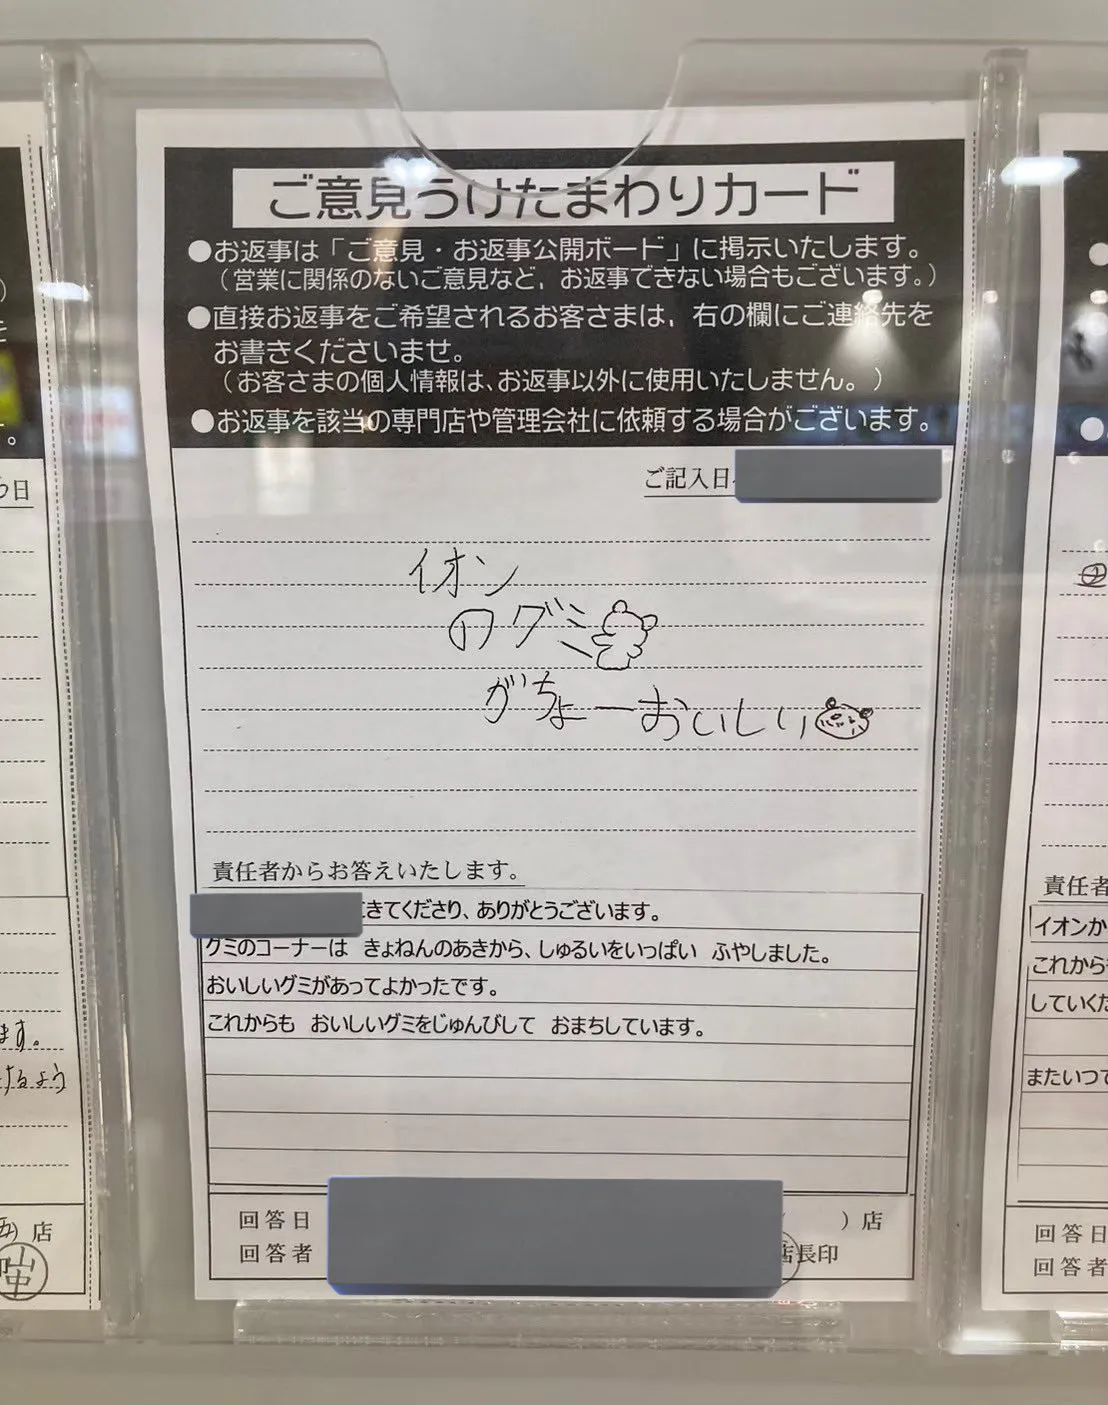 ご意見うけたまわりカード
●お返事は「ご意見・お返事公開ボード」に掲示いたします。
（営業に関係のないご意見など、お返事できない場合もございます。）
●直接お返事をご希望されるお客さまは、右の欄にご連絡先を
お書きくださいませ。
（お客さまの個人情報は、お返事以外に使用いたしません。）
●お返事を該当の専門店や管理会社に依頼する場合がございます。
ご記入日
イオン
のグミ
がちょーおいしい
責任者からお答えいたします。
きてくださり、ありがとうございます。
グミのコーナーは きょねんのあきから、しゅるいをいっぱい ふやしました。
おいしいグミがあってよかったです。
これからも おいしいグミをじゅんびして おまちしています。
回答日 ）店
回答者 店長印
日
。
ます。
けるよう
店
責任者
イオンか
これから
していくた
またいつで
回答日
回答者